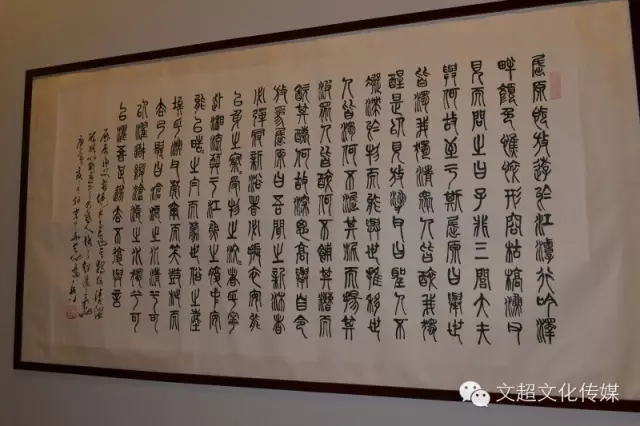 屈原既放遊於江潭行吟澤
畔顏色憔悴形容枯槁漁父
見而問之曰子非三閭大夫
與何故至于斯屈原曰舉世
皆濁我獨清眾人皆醉我獨
醒是以見放漁父曰聖人不
凝滯於物而能與世推移世
人皆濁何不淈其泥而揚其
波眾人皆醉何不餔其糟而
歠其醨何故深思高舉自令
放為屈原曰吾聞之新沐者
必彈冠新浴者必振衣安能
以身之察々受物之汶々者乎寧
赴湘流葬于江魚之腹中安
能以皓々之白而蒙世俗之塵
埃乎漁父莞爾而笑鼓枻而
去乃歌曰滄浪之水清兮可
以濯吾纓滄浪之水濁兮可
以濯吾足遂去不復與言
文超文化传媒